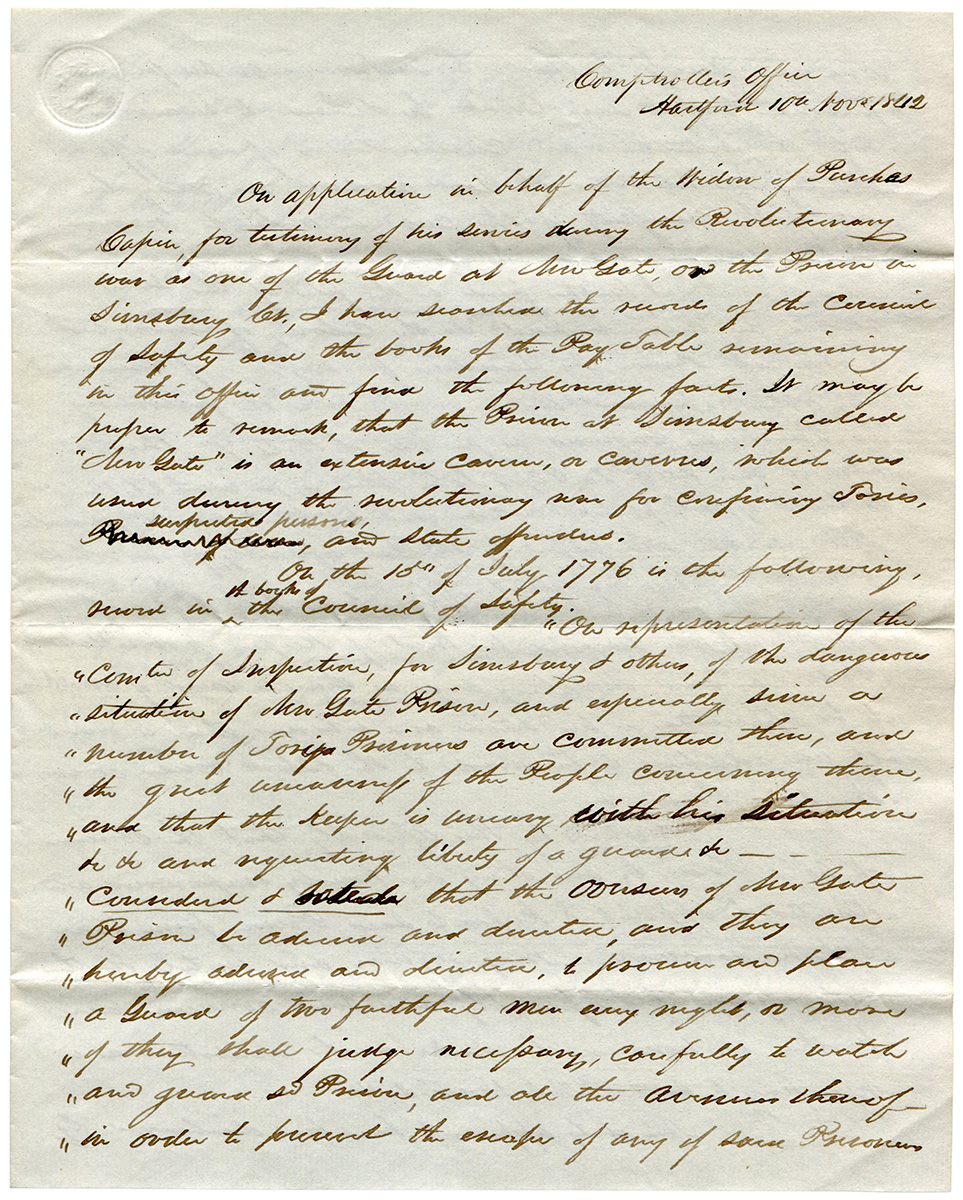 Comptroller's Office
Hartford 10th Novr 1842
On application in behalf of the Widow of Purchas
Capin, for testimony of his services during the Revolutionary
war as one of the Guard at New Gate, or the Prison in
Simsbury Ct., I have searched the records of the Council
of Safety and the books of the Pay Table remaining
in this office and find the following facts. It may be
proper to remark, that the Prison at Simsbury called
"New Gate" is an extensive cavern, or caverns, which was
used during the revolutionary war for confining Tories,
suspected persons,
Prisoners of war, and state offenders.
On the 15th of July 1776 is the following,
record in the Council of Safety.
"On representation of the
"Comtee of Inspection, for Simsbury & others, of the dangerous
"situation of New Gate Prison, and especially since a
"number of Tory Prisoners are committed there, and
"the great uneasiness of the People concerning them,
"and that the Keeper is uneasy with his situation
&c &c and requesting liberty of a guard &c — — —
"Considered & voted that the Overseers of New Gate
"Prison be advised and directed, and they are
"hereby advised and directed, to procure and place
"a Guard of two faithful men every night, or more
"if they shall judge necessary, carefully to watch
"and guard sd Prison, and all the Avenues thereof
"in order to prevent the escape of any of said Prisoners